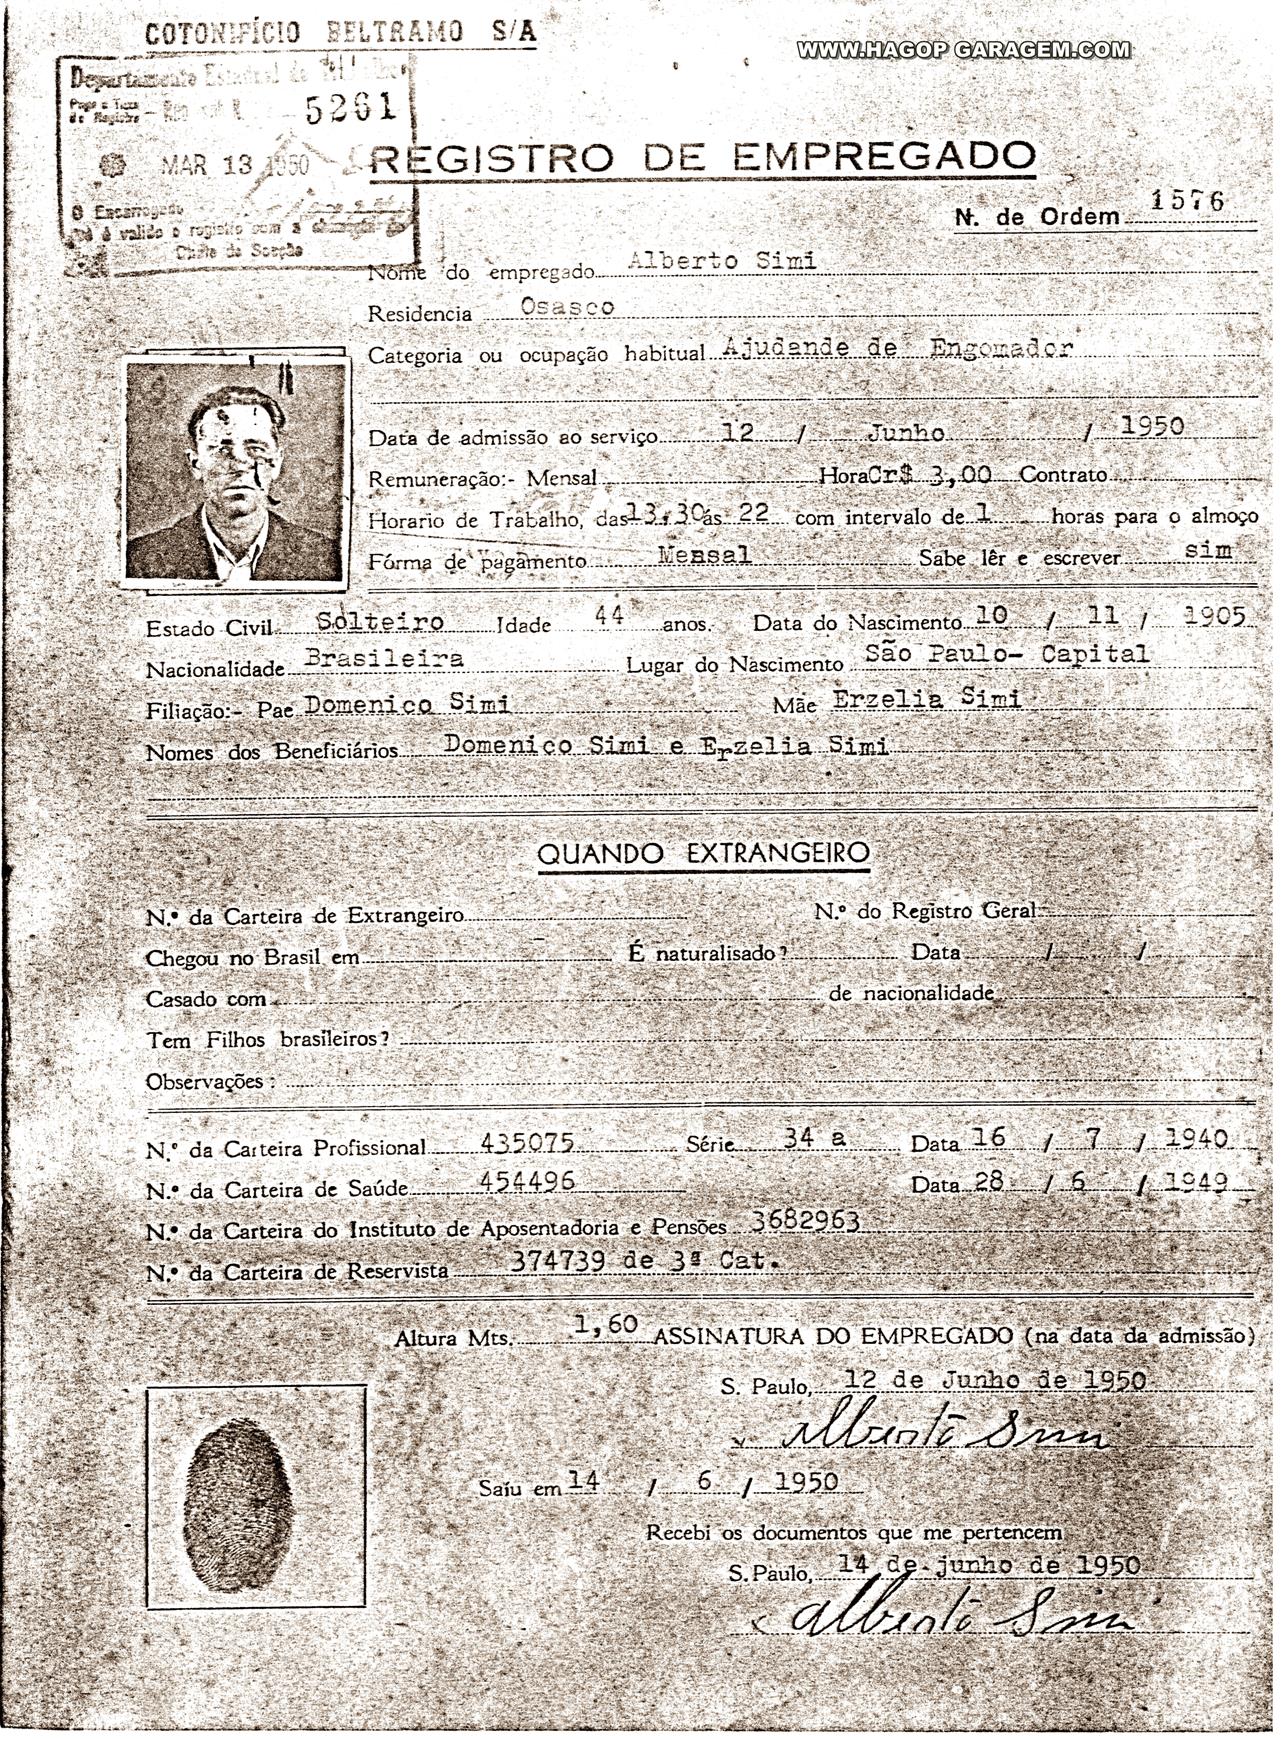 COTONIFÍCIO BELTRAMO S/A
WWW.HAGOP GARAGEM.COM
Departamento Estadual de Trabalho
5261
MAR 13 1950
REGISTRO DE EMPREGADO
N. de Ordem 1576
O Encarregado
é valido o registro com a
Chefe de Secção
Nome do empregado Alberto Simi
Residencia Osasco
Categoria ou ocupação habitual Ajudande de Engomador
Data de admissão ao serviço 12 / Junho / 1950
Remuneração:- Mensal Hora Cr$ 3,00 Contrato
Horario de Trabalho, das 13,30 ás 22 com intervalo de 1 horas para o almoço
Fórma de pagamento Mensal Sabe lêr e escrever sim
Estado Civil Solteiro Idade 44 anos. Data do Nascimento 10 / 11 / 1905
Nacionalidade Brasileira Lugar do Nascimento São Paulo- Capital
Filiação:- Pae Domenico Simi Mãe Erzelia Simi
Nomes dos Beneficiários Domenico Simi e Erzelia Simi
QUANDO EXTRANGEIRO
N.º da Carteira de Extrangeiro N.º do Registro Geral
Chegou no Brasil em É naturalisado? Data / /
Casado com de nacionalidade
Tem Filhos brasileiros?
Observações:
N.º da Carteira Profissional 435075 Série 34 a Data 16 / 7 / 1940
N.º da Carteira de Saúde 454496 Data 28 / 6 / 1949
N.º da Carteira do Instituto de Aposentadoria e Pensões 3682963
N.º da Carteira de Reservista 374739 de 3ª Cat.
Altura Mts. 1,60 ASSINATURA DO EMPREGADO (na data da admissão)
S. Paulo, 12 de Junho de 1950
Alberto Simi
Saíu em 14 / 6 / 1950
Recebi os documentos que me pertencem
S. Paulo, 14 de junho de 1950
Alberto Simi